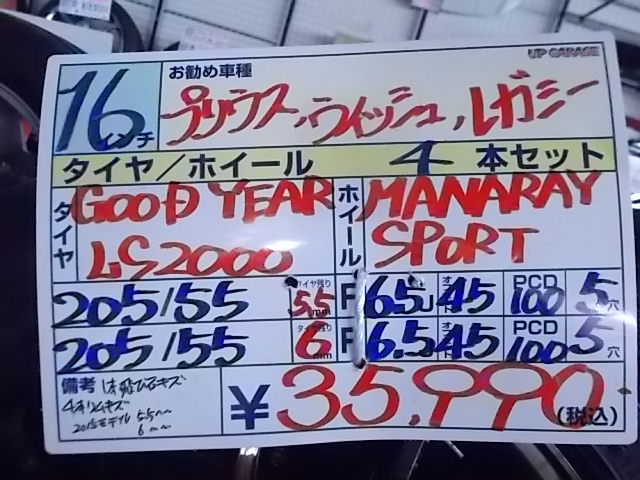 UP GARAGE
16インチ
お勧め車種
プリウス、ウィッシュ、レガシー
タイヤ／ホイール 4 本セット
タイヤ GOOD YEAR ホイール MANARAY
LS2000 SPORT
205/55 タイヤ残り 5.5mm F 6.5J オフ 45 PCD 100 5穴
205/55 タイヤ残り 6mm 6.5 45 PCD 100 5穴
備考 1本飛び石キズ
4本リムキズ
2015モデル 5.5mm
6mm
¥35,990(税込)